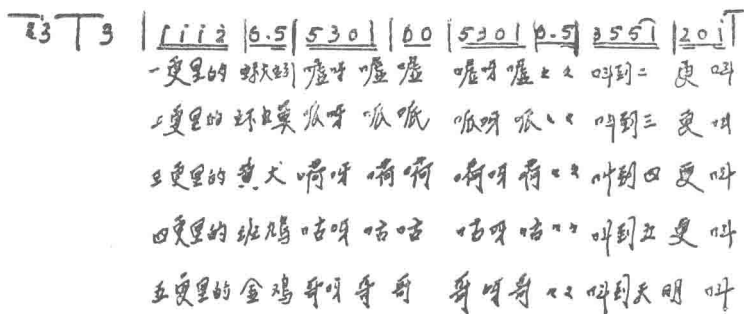 2 3 3 | 1 1 1 2 | 6.5 | 5 3 0 | 6 0 | 5 3 0 | 6.5 | 3 5 5 1 | 2 0 1
一更里的 嘘呀 嘘嘘 嘘呀嘘 叫到二 更 叫
二更里的 呱呀 呱呱 呱呀 呱 叫到三 更 叫
三更里的 黄犬 嗬呀 嗬嗬 嗬呀嗬 叫到四 更 叫
四更里的 班鸠 咕呀 咕咕 咕呀咕 叫到五 更 叫
五更里的 金鸡 哥呀 哥哥 哥呀哥 叫到天 明 叫